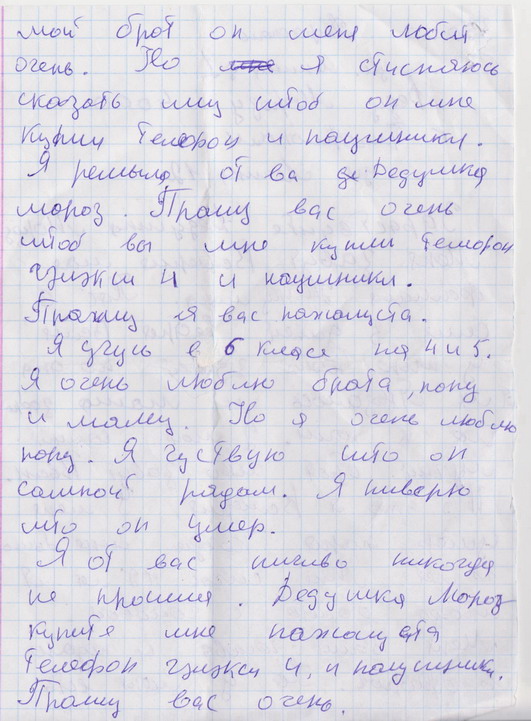 мой брат он меня любит
очень. Но я стисняюсь
сказать иму штоб он мне
купил телефон и наушники.
Я решыла от ва Дедушка
мороз. Прашу вас очень
штоб вы мне купили телефон
гэлэкси 4 и наушники.
Прашу я вас пажалуста.
Я учусь в 6 класе на 4 и 5.
Я очень люблю брата, папу
и маму. Но я очень люблю
папу. Я чуствую што он
самной рядам. Я ниверю
што он умер.
Я от вас ничиво никогда
не прасила. Дедушка Мороз
купите мне пажалуста
телефон гэлэкси 4, и наушники.
Прашу вас очень.